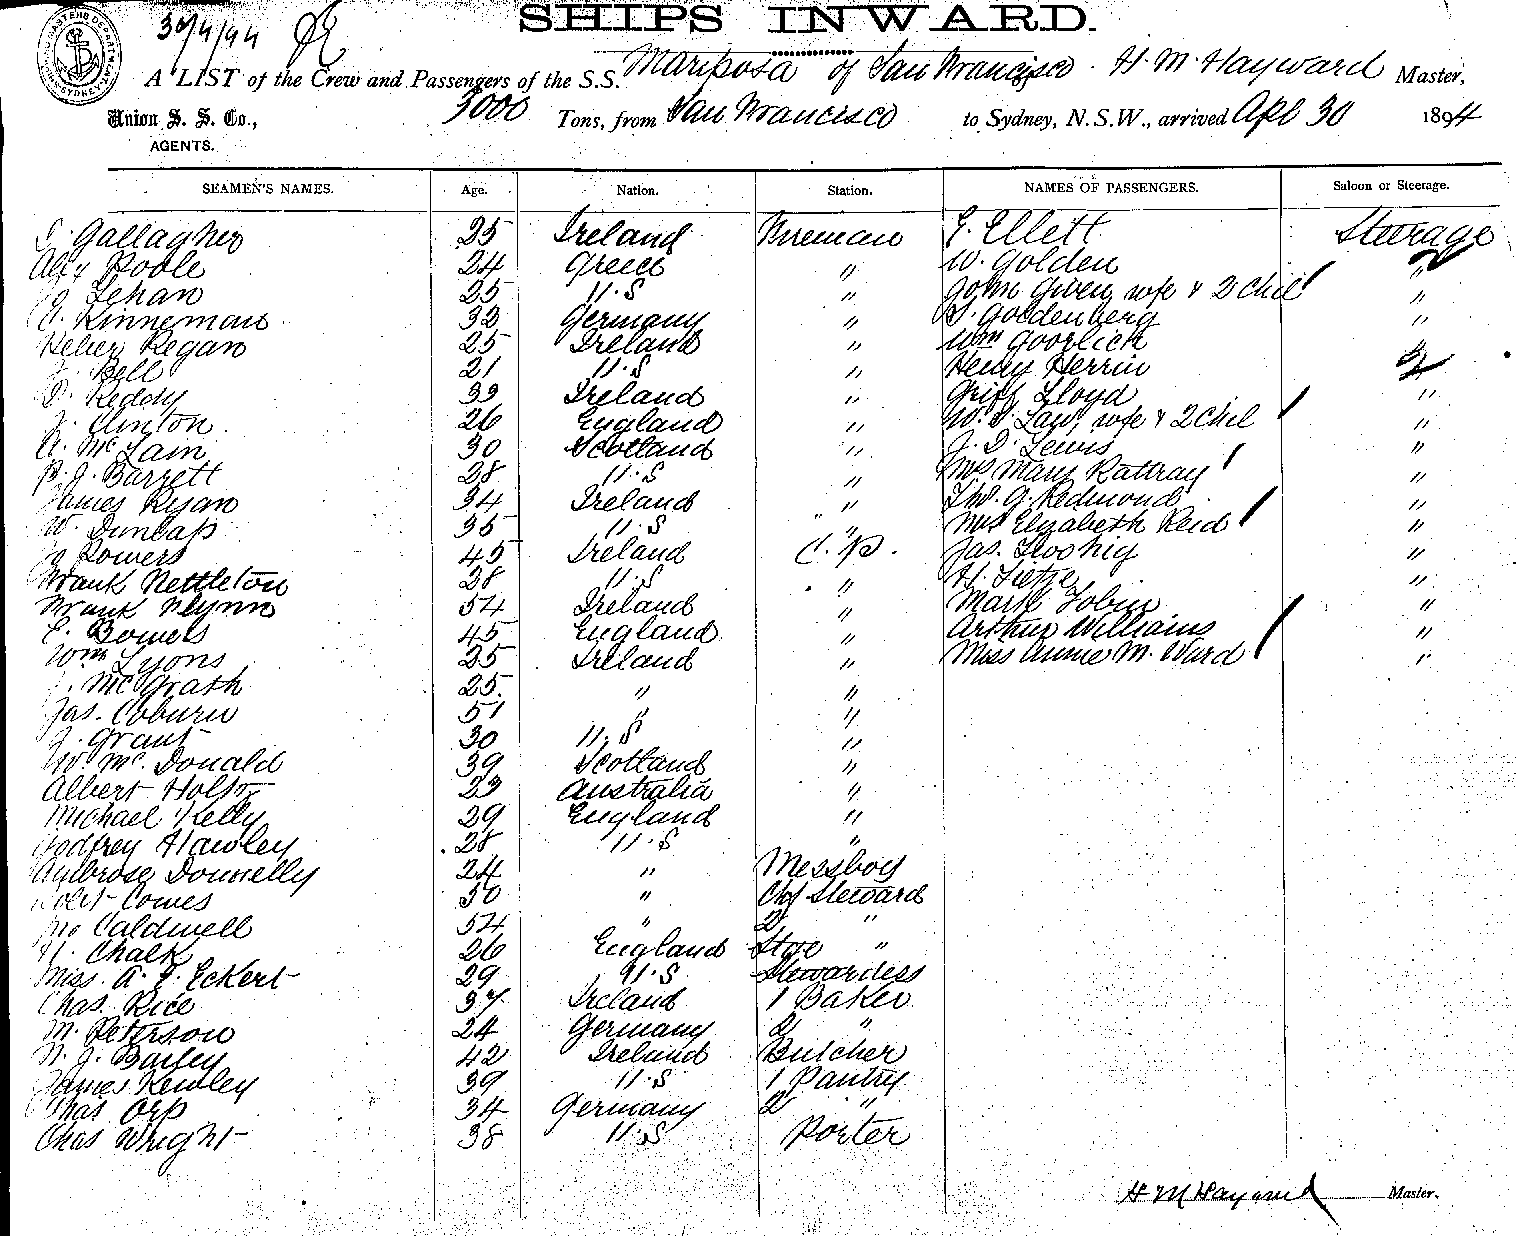 30/4/94
SHIPS INWARD.
A LIST of the Crew and Passengers of the S.S. Mariposa of San Francisco. H. M. Hayward Master,
Union S. S. Co., 3000 Tons, from San Francisco to Sydney, N.S.W., arrived Apl 30 1894
AGENTS.
SEAMEN'S NAMES. Age. Nation. Station. NAMES OF PASSENGERS. Saloon or Steerage.
Gallagher 25 Ireland Fireman E. Ellett Steerage
Alex Poole 24 Greece " W. Golden "
Lehan 25 U.S " John Given, wife & 2 Chil "
Kinneman 32 Germany " S. Goldenberg "
Heber Regan 25 Ireland " Wm Goorlich "
Bell 21 U.S " Henry Herrin
D. Reddy 33 Ireland " Griff Lloyd "
J. Clinton. 26 England " W. S. Law, wife & 2 Chil "
A. McLain 30 Scotland " J. D. Lewis "
P. J. Barrett 28 U.S " Mrs Mary Rattray "
James Ryan 34 Ireland " Thos. G. Redmond "
W. Dunlap 35 U.S " Mrs Elizabeth Reid "
J. Powers 45 Ireland C. P. Jas. "
Frank Nettleton 28 U.S " H. Tietje "
Frank Flynn 54 Ireland " Mark Tobin "
E. Bowers 45 England " Arthur Williams "
Wm Lyons 25 Ireland " Miss Annie M. Ward "
J. McGrath 25. " "
Jas. Coburn 51 " "
J. Grant 30 U.S "
W. McDonald 39 Scotland "
Albert Holst 23 Australia "
Michael Kelly 29 England "
Godfrey Hawley 28 U.S "
Ambrose Donnelly 24 " Messboy
Comes 50 " Chf Steward
Jno Caldwell 54 " 2 "
H. Chalk 26 England Stge "
Miss. A. E. Eckert 29 U.S Stewardess
Chas. Rice 37 Ireland 1 Baker
M. Peterson 24 Germany 2 "
N. J. Bailey 42 Ireland Butcher
James Kewley 39 U.S 1 Pantry
Chas Orp 34 Germany 2 "
Chas Wright 38 U.S Porter
H M Hayward Master.